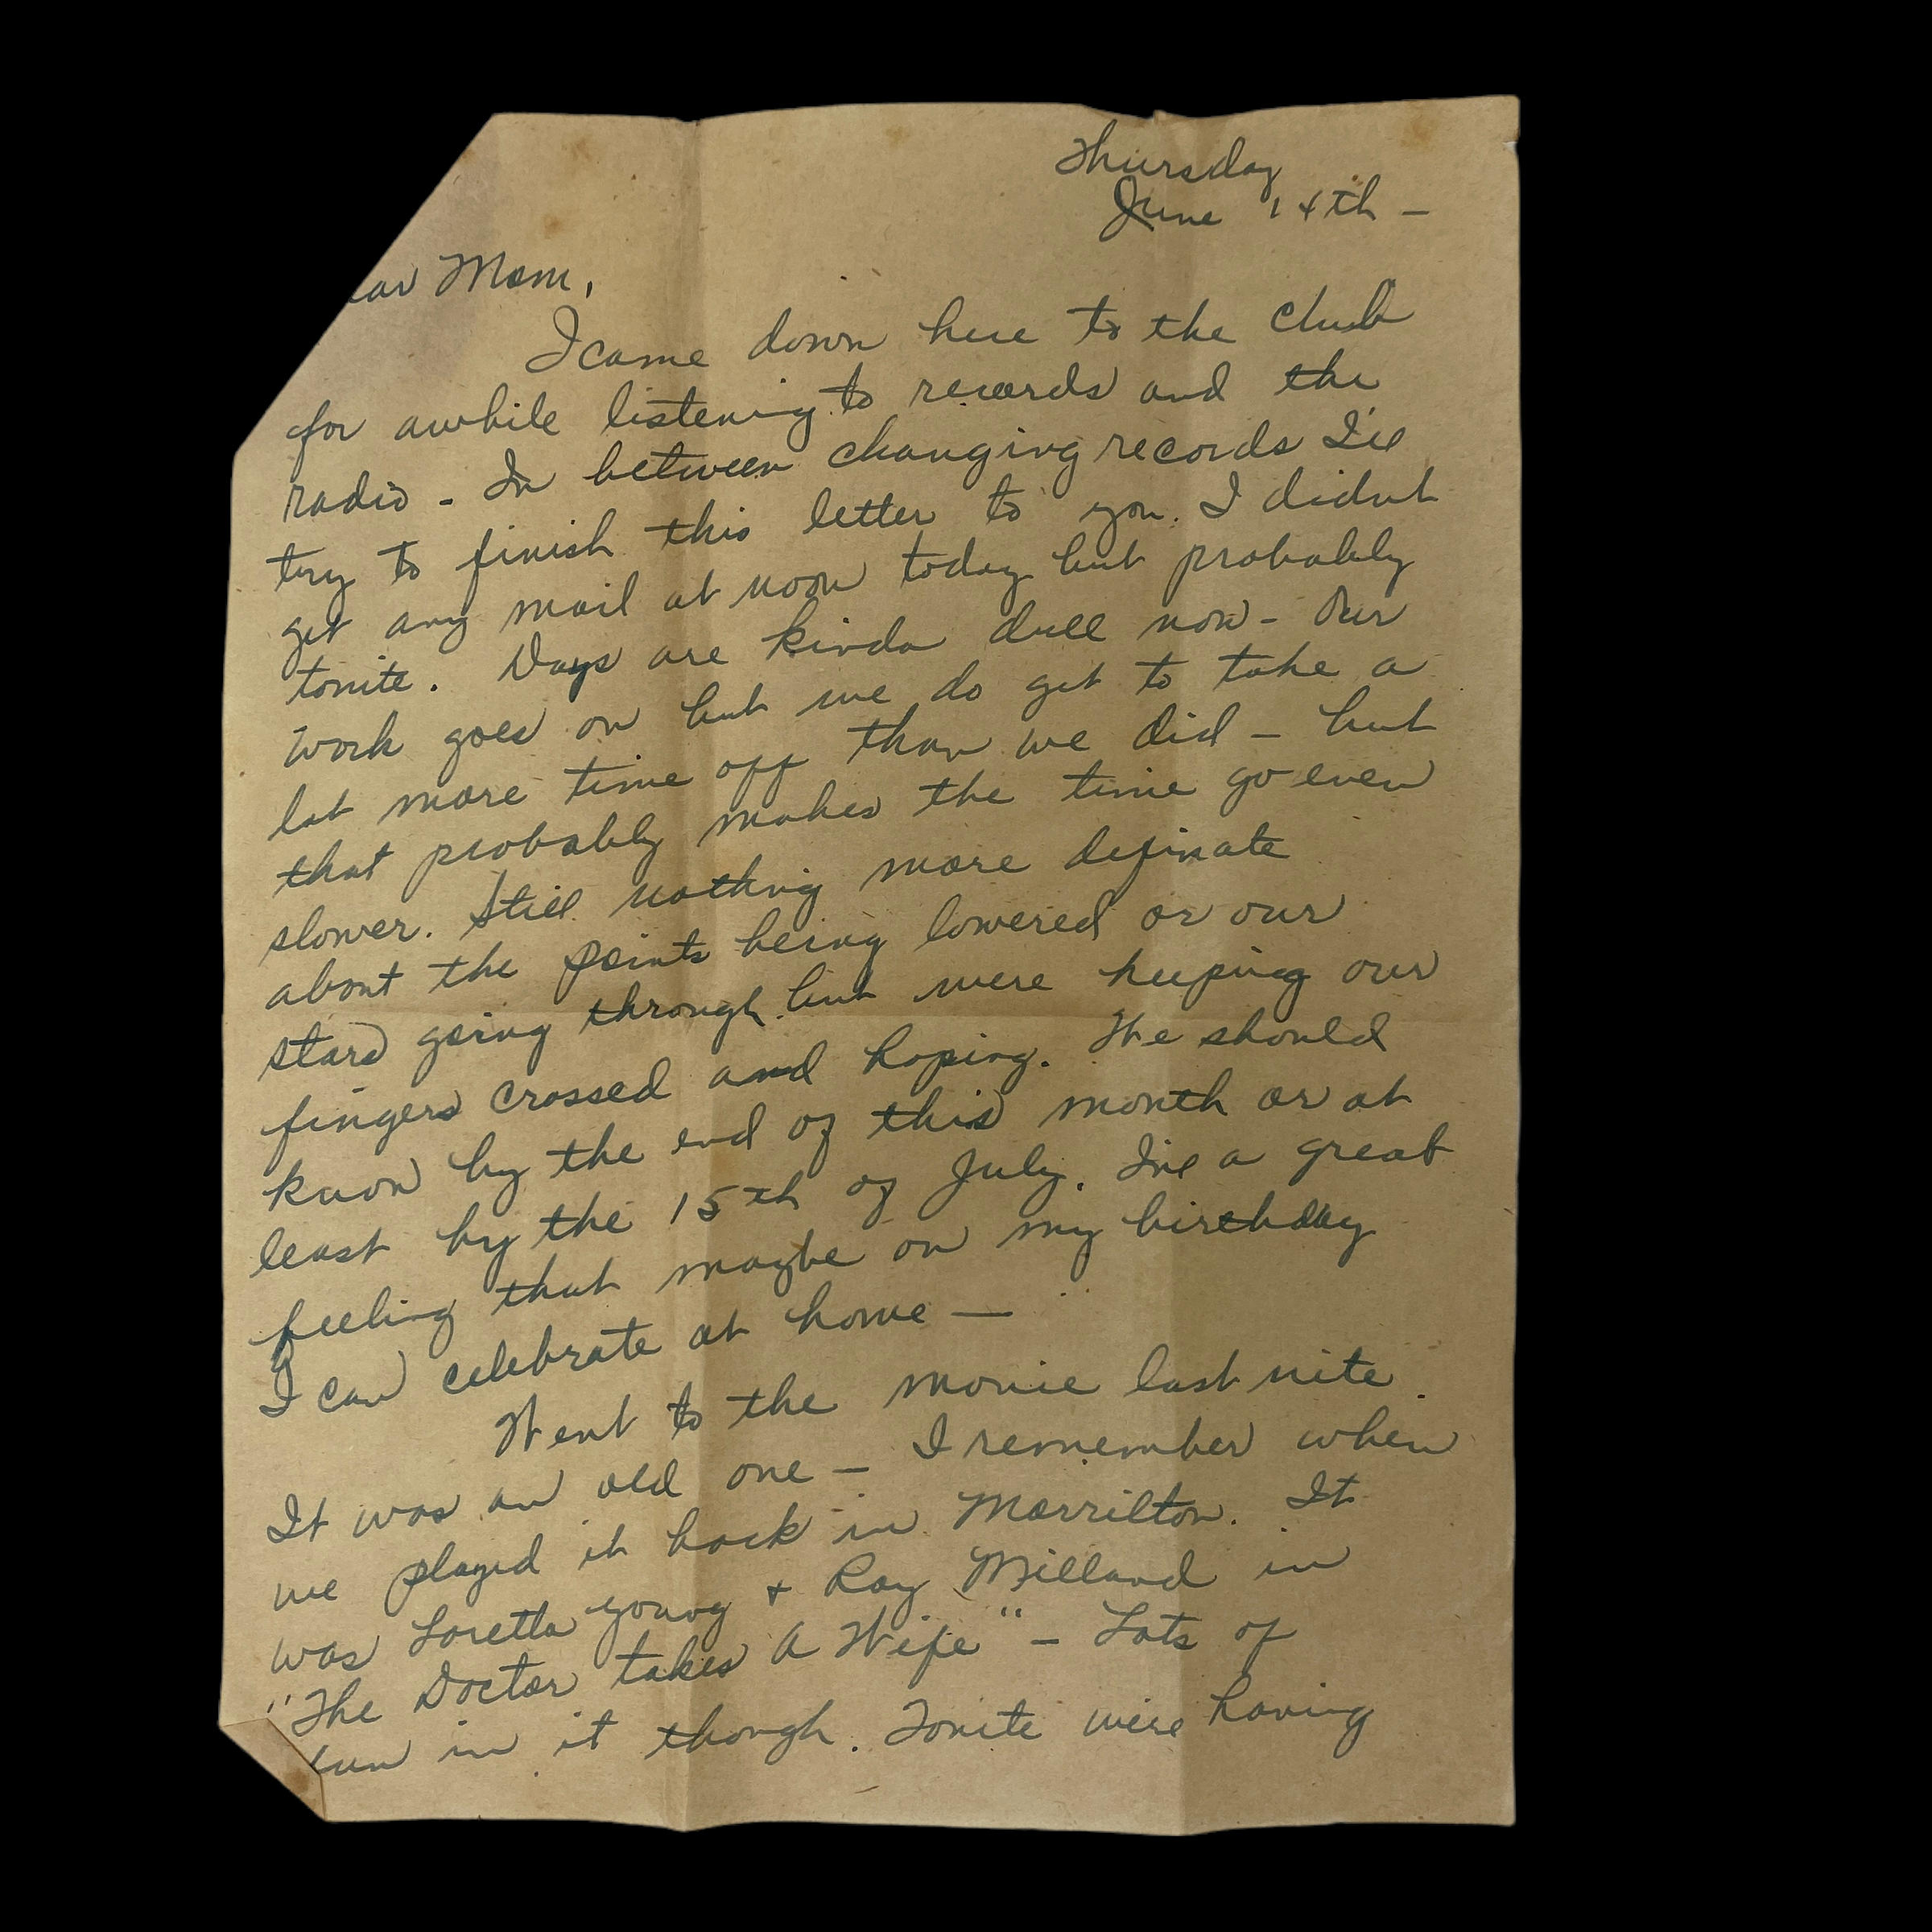 Thursday
June 14th —
ear Mom,
I came down here to the club
for awhile listening to records and the
radio - In between changing records I'll
try to finish this letter to you. I didn't
get any mail at noon today but probably
tonite. Days are kinda dull now - Our
work goes on but we do get to take a
lot more time off than we did — but
that probably makes the time go even
slower. Still nothing more definate
about the points being lowered or our
stars going through but were keeping our
fingers crossed and hoping. We should
know by the end of this month or at
least by the 15th of July. I've a great
feeling that maybe on my birthday
I can celebrate at home —
Went to the movie last nite.
It was an old one — I remember when
we played it back in Morrilton. It
was Loretta Young + Ray Milland in
"The Doctor takes A Wife" — Lots of
fun in it though. Tonite were having